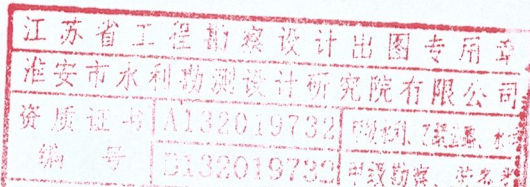 江苏省工程勘察设计出图专用章
淮安市水利勘测设计研究院有限公司
资质证书 A132019732 甲级水利、乙级
编号 B132019732 甲级勘察